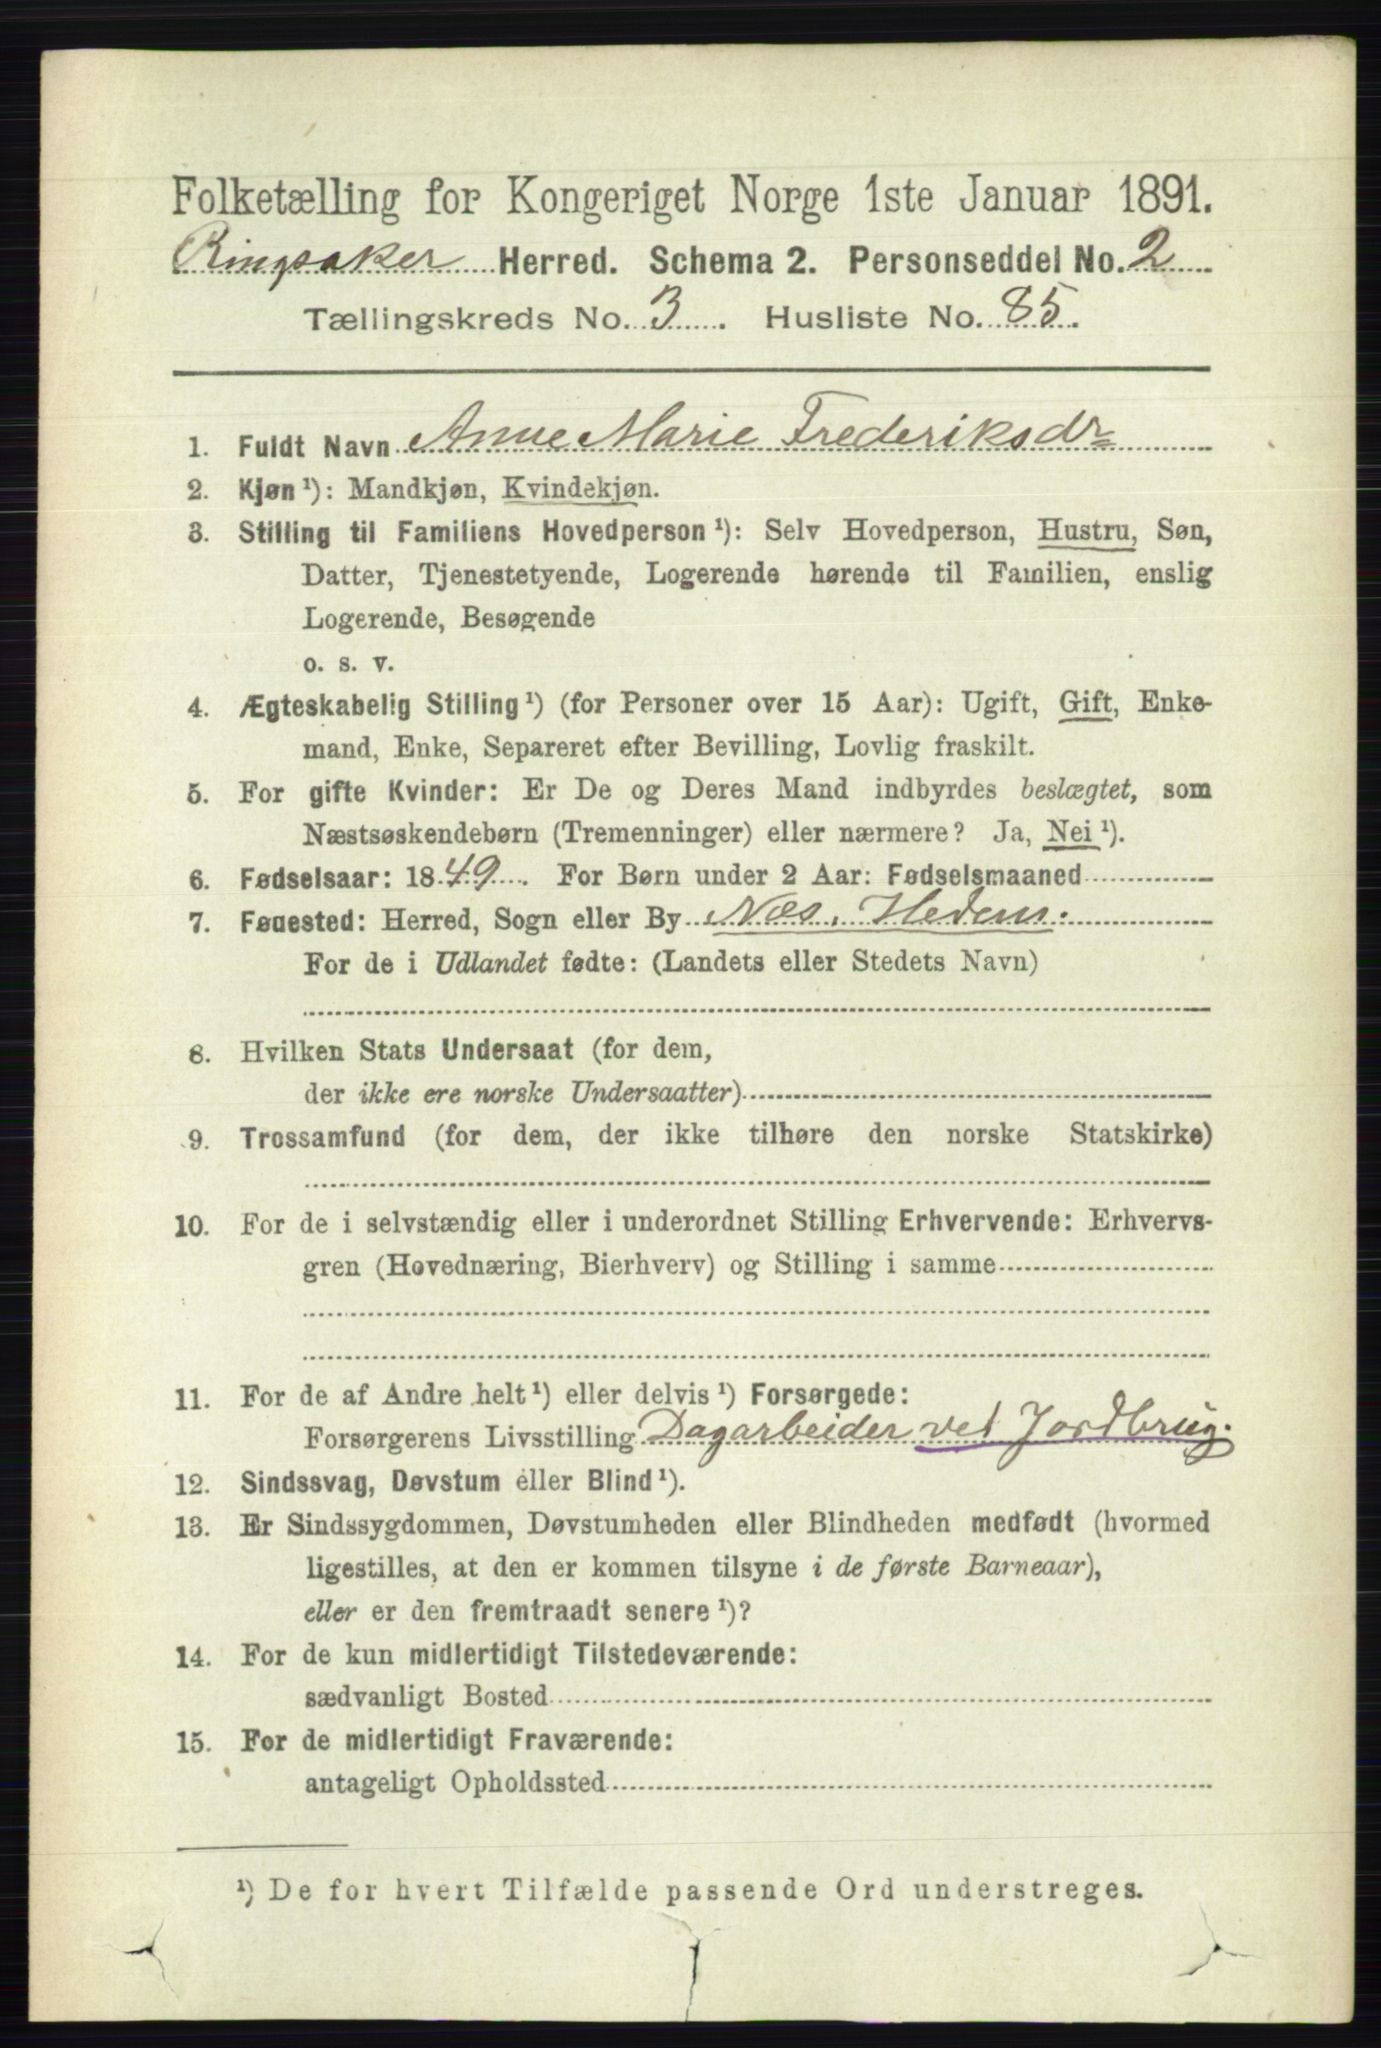 Folketælling for Kongeriget Norge 1ste Januar 1891.
Ringsaker Herred. Schema 2. Personseddel No. 2
Tællingskreds No. 3. Husliste No. 85.
1. Fuldt Navn Anne Marie Frederiksdr
2. Kjøn ¹): Mandkjøn, Kvindekjøn.
3. Stilling til Familiens Hovedperson ¹): Selv Hovedperson, Hustru, Søn,
Datter, Tjenestetyende, Logerende hørende til Familien, enslig
Logerende, Besøgende
o. s. v.
4. Ægteskabelig Stilling ¹) (for Personer over 15 Aar): Ugift, Gift, Enke-
mand, Enke, Separeret efter Bevilling, Lovlig fraskilt.
5. For gifte Kvinder: Er De og Deres Mand indbyrdes beslægtet, som
Næstsøskendebørn (Tremenninger) eller nærmere? Ja, Nei ¹).
6. Fødselsaar: 1849. For Børn under 2 Aar: Fødselsmaaned
7. Fødested: Herred, Sogn eller By Næs, Hedem.
For de i Udlandet fødte: (Landets eller Stedets Navn)
8. Hvilken Stats Undersaat (for dem,
der ikke ere norske Undersaatter)
9. Trossamfund (for dem, der ikke tilhøre den norske Statskirke)
10. For de i selvstændig eller i underordnet Stilling Erhvervende: Erhvervs-
gren (Hovednæring, Bierhverv) og Stilling i samme
11. For de af Andre helt ¹) eller delvis ¹) Forsørgede:
Forsørgerens Livsstilling Dagarbeider ved Jordbrug.
12. Sindssvag, Døvstum eller Blind ¹).
13. Er Sindssygdommen, Døvstumheden eller Blindheden medfødt (hvormed
ligestilles, at den er kommen tilsyne i de første Barneaar),
eller er den fremtraadt senere ¹)?
14. For de kun midlertidigt Tilstedeværende:
sædvanligt Bosted
15. For de midlertidigt Fraværende:
antageligt Opholdssted
¹) De for hvert Tilfælde passende Ord understreges.